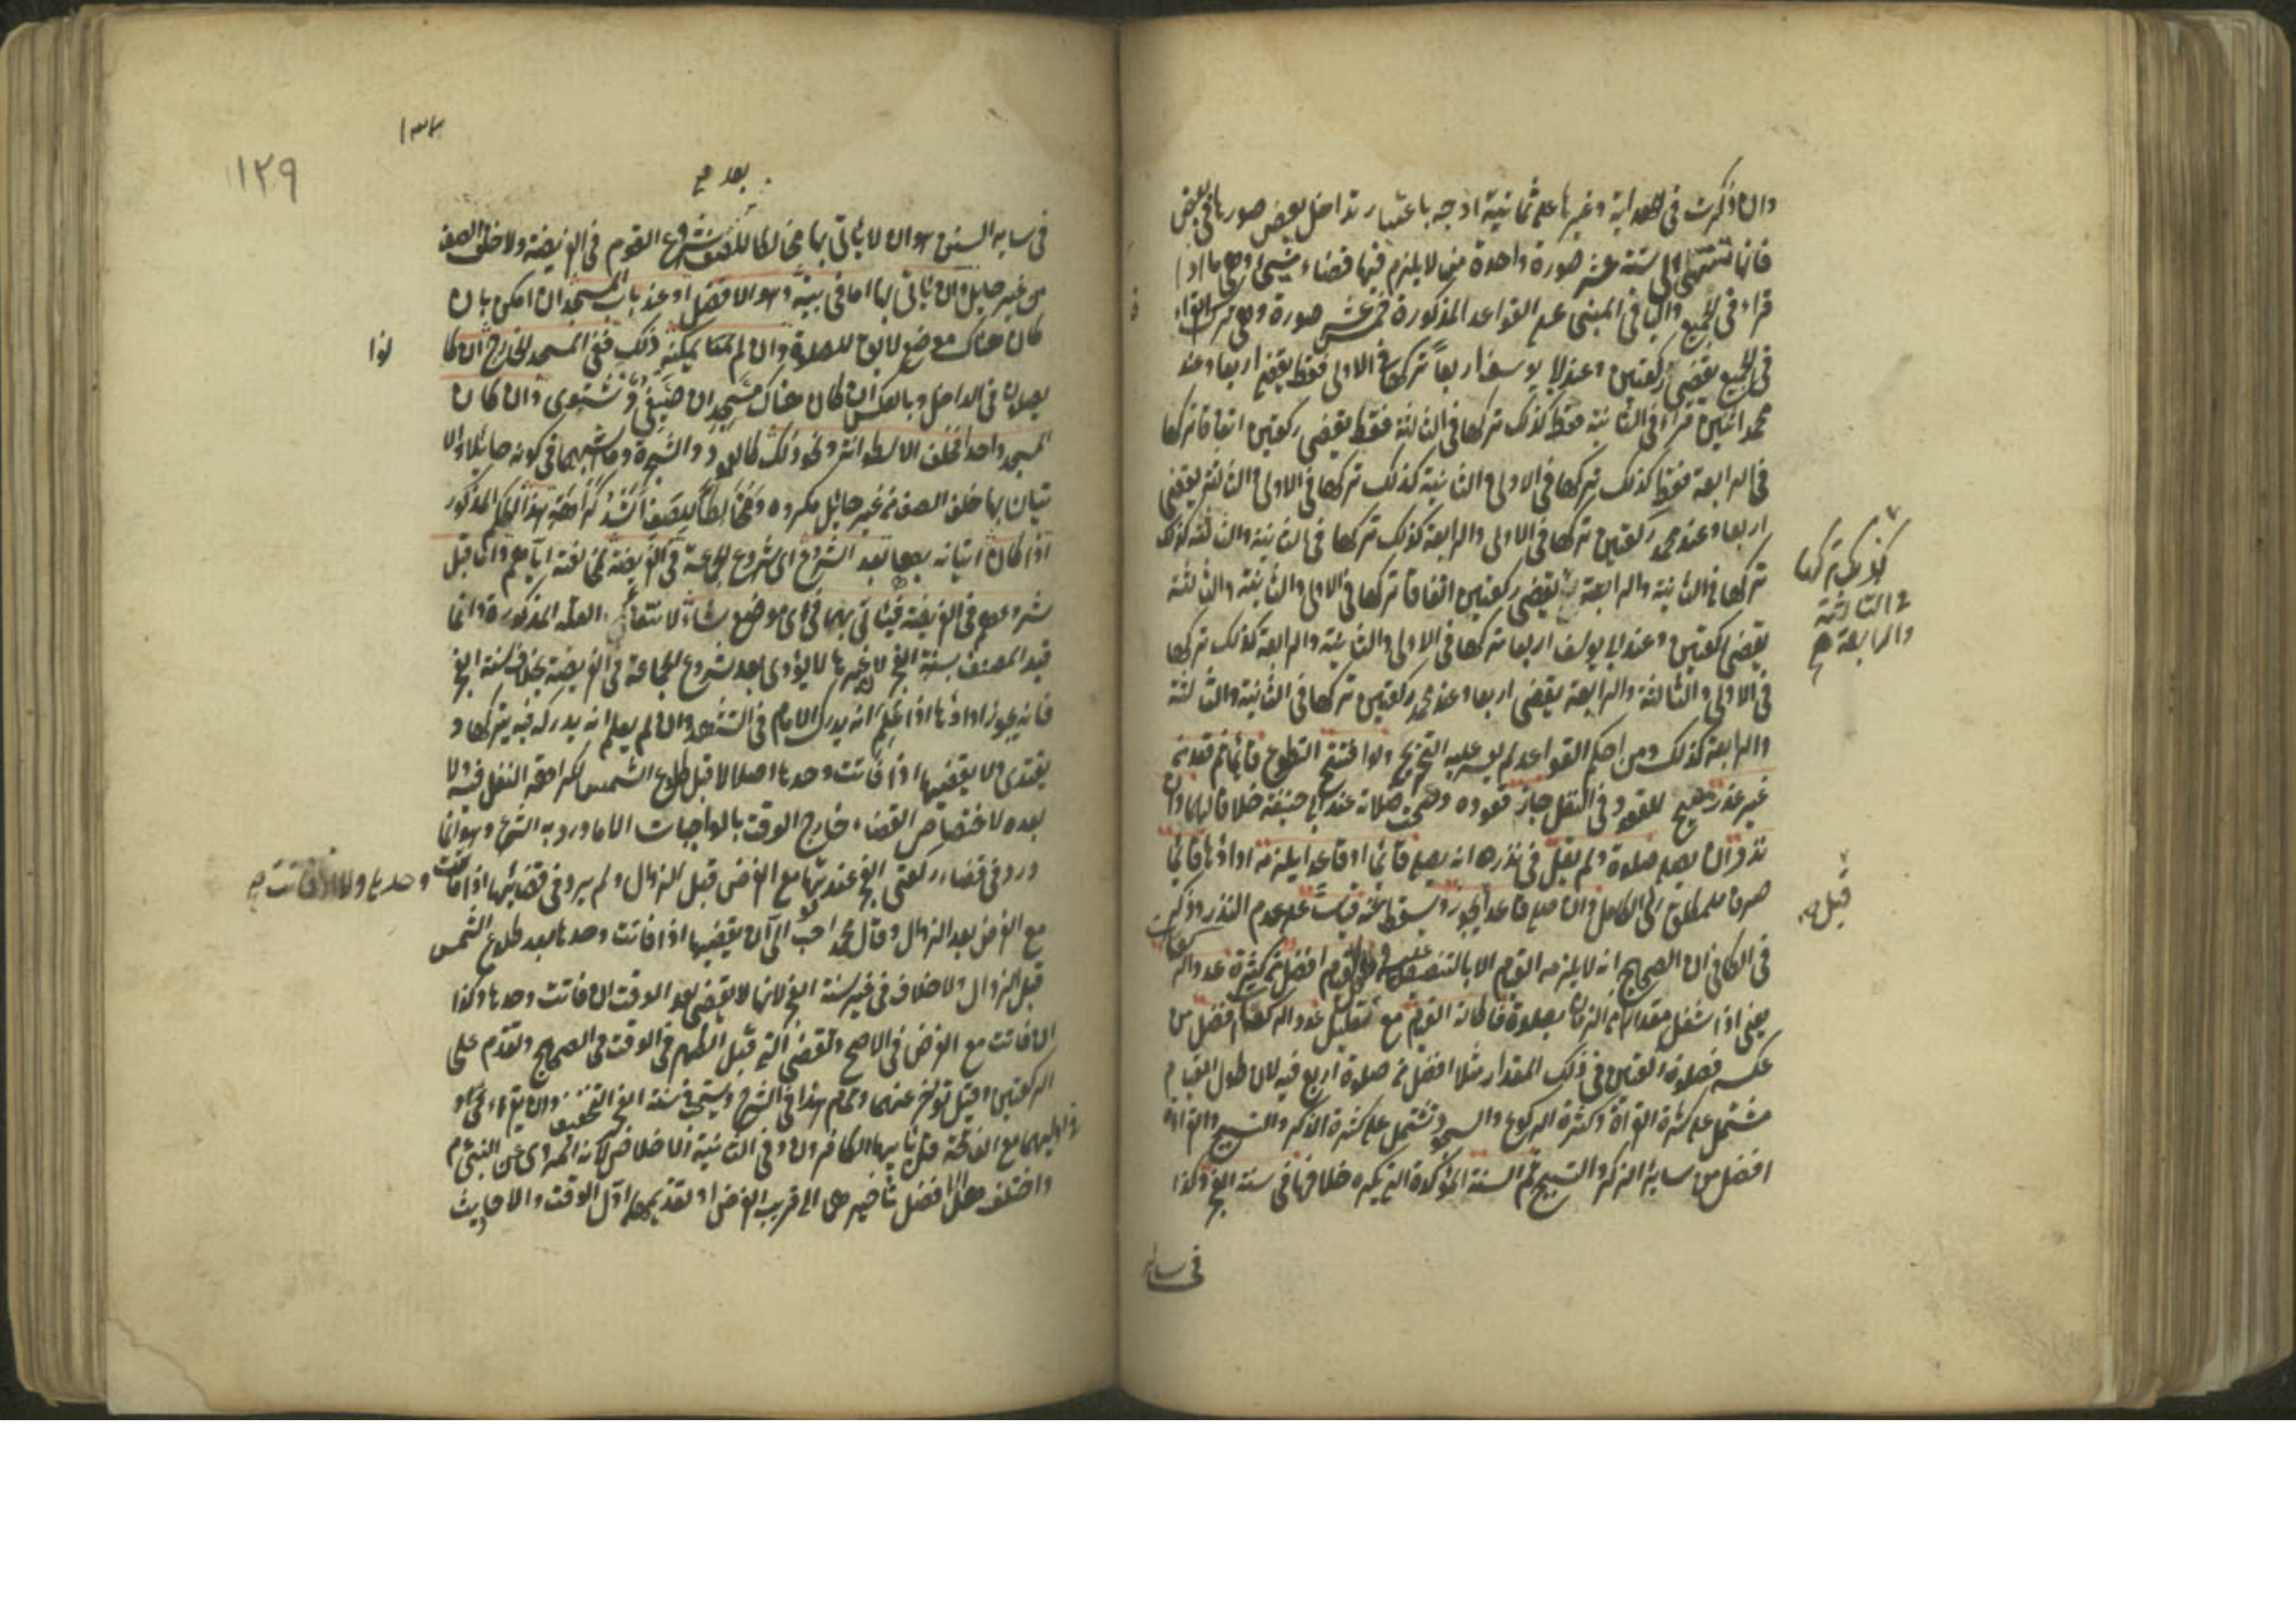 وان ذكرت فى الهداية وغيرها على ثمانية اوجه باعتبار تداخل بعض صورها فى بعض
فانها تنتهى الى ستة عشر صورة واحدة منها لا يلزم فيها قضاء شيئ وهى ما اذا
قراء فى الجميع والباقى المبنى على القواعد المذكورة خمسة عشر صورة وهى ترك القراءة
فى الجميع يقضى ركعتين وعند ابى يوسف اربعا تركها فى الاولى فقط يقضى اربعا وعند
محمد اثنين قراء فى الثانية فقط كذلك تركها فى الثالثة فقط يقضى ركعتين اتفاقا تركها
فى الرابعة فقط كذلك تركها فى الاولى والثانية كذلك تركها فى الاولى والثالثة يقضى
اربعا وعند محمد ركعتين تركها فى الاولى والرابعة كذلك تركها فى الثانية والثالثة كذلك
تركها فى الثانية والرابعة يقضى ركعتين اتفاقا تركها فى الاولى والثانية والثالثة
كذلك تركها
فى الثالثة
والرابعة صح
يقضى ركعتين وعند ابى يوسف اربعا تركها فى الاولى والثانية والرابعة كذلك تركها
فى الاولى والثالثة والرابعة يقضى اربعا وعند محمد ركعتين تركها فى الثانية والثالثة
والرابعة كذلك ومن احكم القواعد لم يعسر عليه التخريج ولو افتتح التطوع قائما ثم قعد من
غير عذر صحيح للقعود فى النفل جاز قعوده وصحت صلاته عند ابى حنيفة خلافا لهما وان
نذر ان يصلى صلوة ولم يقل فى نذره انه يصلى قائما او قاعدا يلزمه اداؤها قائما
صرفا للمطلق الى الكامل وان صلى قاعدا يجوز ويسقط عنه قياسا على عدم النذر وذكر
قبل صح
فى الكافى ان الصحيح انه لا يلزمه القيام الا بالتنصيص عليه وطول القيام افضل من كثرة عدد الركعات
يعنى اذا شغل مقدارا من الزمان بصلوة فاطالة القيام مع تقليل عدد الركعات افضل من
عكسه فصلوة ركعتين فى ذلك المقدار مثلا افضل من صلوة اربع فيه لان طول القيام
مشتمل على كثرة القراءة وكثرة الركوع والسجود تشتمل على كثرة الذكر والتسبيح والقراءة
افضل من سائر الذكر والتسبيح ثم السنة المؤكدة التى يكره خلافها فى سنة الفجر وكذا
فى سائر
١٢٩
بعد صح
فى سائر السنن هو ان لا يأتى بها مخالطا للصف شروع القوم فى الفريضة ولا خلف الصف
من غير حايل وان يأتى بها اما فى بيته وهو الافضل او عند باب المسجد ان امكن بان
كان هناك موضع لايق للصلوة وان لم يمكنه ذلك ففى المسجد الخارج ان كا
نوا
يصلون فى الداخل وبالعكس ان كان هناك مسجدان صيفى وشتوى وان كان
المسجد واحدا فخلف الاسطوانة ونحو ذلك كالعمود والشجرة وما اشبههما فى كونه حايلا والا
تيان بها خلف الصف من غير حايل مكروه ومخالطا للصف اشد كراهة هذا الحكم المذكور
اذا كان اتيانه بها بعد الشروع اى شروع الجماعة فى الفريضة لمخالفته اياهم واما قبل
شروعهم فى الفريضة فيأتى بها فى اى موضع شاء لانتفاء العلة المذكورة وانما
قيد المصنف بسنة الفجر لان غيرها لا يؤدى بعد شروع الجماعة فى الفريضة بخلاف سنة الفجر
فانه يجوز اداؤها اذا علم انه يدرك الامام فى التشهد وان لم يعلم انه يدركه فيه يتركها و
يقتدى ولا يقضيها اذا فاتت وحدها اصلا لا قبل طلوع الشمس لكراهة النفل فيه ولا
بعده لاختصاص القضاء خارج الوقت بالواجبات الا ما ورد به الشرع وهو انما
ورد فى قضاء ركعتى الفجر عند فوتها مع الفرض قبل الزوال ولم يرد فى قضائها اذا فاتت وحدها ولا اذا فاتت صح
مع الفرض بعد الزوال وقال محمد احب الى ان يقضيها اذا فاتت وحدها بعد طلوع الشمس
قبل الزوال ولا خلاف فى غير سنة الفجر لانها لا يقضى بعد الوقت ان فاتت وحدها وكذا
ان فاتت مع الفرض فى الاصح وتقضى التى قبل الظهر فى الوقت فى الصحيح وتقدم على
الركعتين وقيل تؤخر عنهما وتمام هذا فى الشرح ويستحب فى سنة الفجر التخفيف وان يقراء
فى اوليهما مع الفاتحة قل يا ايها الكافرون وفى الثانية الاخلاص لانه المروى عن النبى م
واختلف هل الافضل تأخيرها الى قريب الفرض او تقديمها اول الوقت والاحاديث